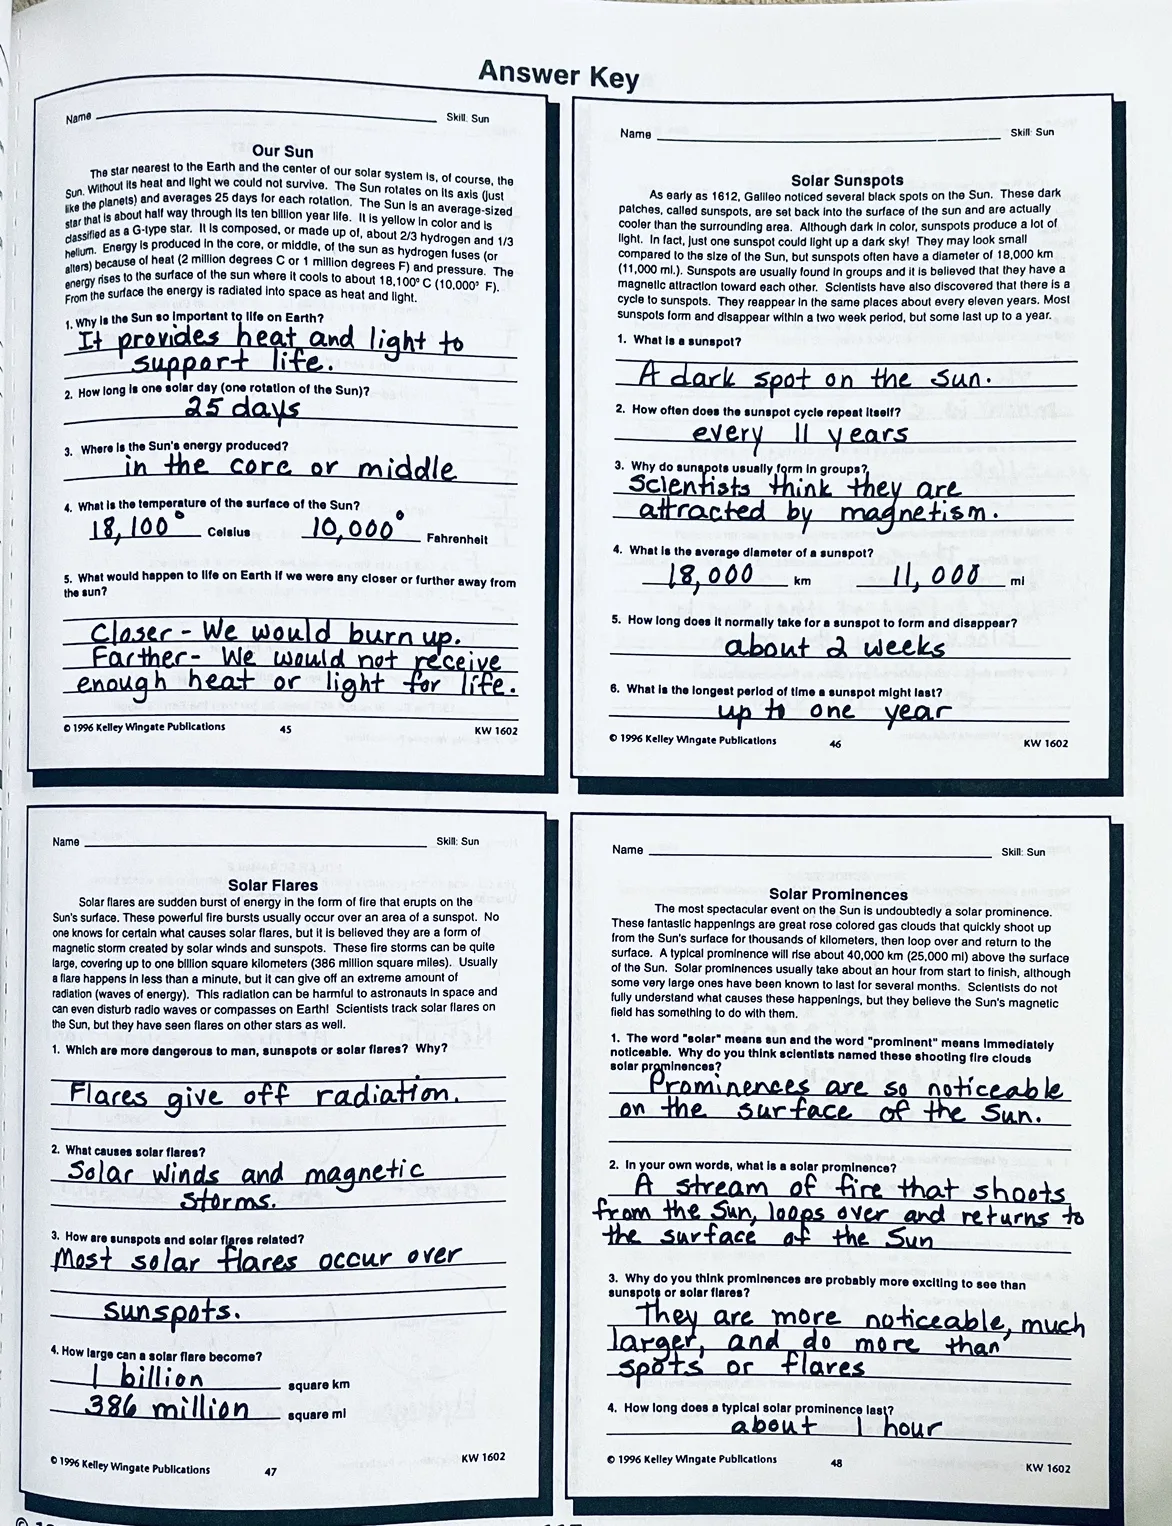 Answer Key
Name Skill: Sun
Our Sun
The star nearest to the Earth and the center of our solar system is, of course, the
Sun. Without its heat and light we could not survive. The Sun rotates on its axis (just
like the planets) and averages 25 days for each rotation. The Sun is an average-sized
star that is about half way through its ten billion year life. It is yellow in color and is
classified as a G-type star. It is composed, or made up of, about 2/3 hydrogen and 1/3
helium. Energy is produced in the core, or middle, of the sun as hydrogen fuses (or
alters) because of heat (2 million degrees C or 1 million degrees F) and pressure. The
energy rises to the surface of the sun where it cools to about 18,100° C (10,000° F).
From the surface the energy is radiated into space as heat and light.
1. Why is the Sun so important to life on Earth?
It provides heat and light to
support life.
2. How long is one solar day (one rotation of the Sun)?
25 days
3. Where is the Sun's energy produced?
in the core or middle
4. What is the temperature of the surface of the Sun?
18,100° Celsius 10,000° Fahrenheit
5. What would happen to life on Earth if we were any closer or further away from
the sun?
Closer - We would burn up.
Farther - We would not receive
enough heat or light for life.
© 1996 Kelley Wingate Publications 45 KW 1602
Name Skill: Sun
Solar Sunspots
As early as 1612, Galileo noticed several black spots on the Sun. These dark
patches, called sunspots, are set back into the surface of the sun and are actually
cooler than the surrounding area. Although dark in color, sunspots produce a lot of
light. In fact, just one sunspot could light up a dark sky! They may look small
compared to the size of the Sun, but sunspots often have a diameter of 18,000 km
(11,000 mi.). Sunspots are usually found in groups and it is believed that they have a
magnetic attraction toward each other. Scientists have also discovered that there is a
cycle to sunspots. They reappear in the same places about every eleven years. Most
sunspots form and disappear within a two week period, but some last up to a year.
1. What is a sunspot?
A dark spot on the sun.
2. How often does the sunspot cycle repeat itself?
every 11 years
3. Why do sunspots usually form in groups?
Scientists think they are
attracted by magnetism.
4. What is the average diameter of a sunspot?
18,000 km 11,000 mi
5. How long does it normally take for a sunspot to form and disappear?
about 2 weeks
6. What is the longest period of time a sunspot might last?
up to one year
© 1996 Kelley Wingate Publications 46 KW 1602
Name Skill: Sun
Solar Flares
Solar flares are sudden burst of energy in the form of fire that erupts on the
Sun's surface. These powerful fire bursts usually occur over an area of a sunspot. No
one knows for certain what causes solar flares, but it is believed they are a form of
magnetic storm created by solar winds and sunspots. These fire storms can be quite
large, covering up to one billion square kilometers (386 million square miles). Usually
a flare happens in less than a minute, but it can give off an extreme amount of
radiation (waves of energy). This radiation can be harmful to astronauts in space and
can even disturb radio waves or compasses on Earth! Scientists track solar flares on
the Sun, but they have seen flares on other stars as well.
1. Which are more dangerous to man, sunspots or solar flares? Why?
Flares give off radiation.
2. What causes solar flares?
Solar winds and magnetic
storms.
3. How are sunspots and solar flares related?
Most solar flares occur over
sunspots.
4. How large can a solar flare become?
1 billion square km
386 million square mi
© 1996 Kelley Wingate Publications 47 KW 1602
Name Skill: Sun
Solar Prominences
The most spectacular event on the Sun is undoubtedly a solar prominence.
These fantastic happenings are great rose colored gas clouds that quickly shoot up
from the Sun's surface for thousands of kilometers, then loop over and return to the
surface. A typical prominence will rise about 40,000 km (25,000 mi) above the surface
of the Sun. Solar prominences usually take about an hour from start to finish, although
some very large ones have been known to last for several months. Scientists do not
fully understand what causes these happenings, but they believe the Sun's magnetic
field has something to do with them.
1. The word "solar" means sun and the word "prominent" means immediately
noticeable. Why do you think scientists named these shooting fire clouds
solar prominences?
Prominences are so noticeable
on the surface of the Sun.
2. In your own words, what is a solar prominence?
A stream of fire that shoots
from the Sun, loops over and returns to
the surface of the Sun
3. Why do you think prominences are probably more exciting to see than
sunspots or solar flares?
They are more noticeable, much
larger, and do more than
spots or flares
4. How long does a typical solar prominence last?
about 1 hour
© 1996 Kelley Wingate Publications 48 KW 1602